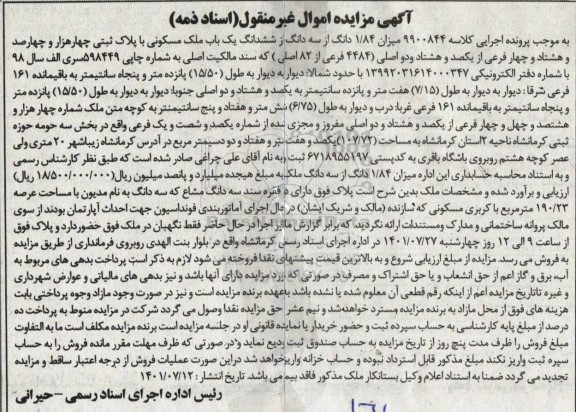 آگهی مزایده اموال غیرمنقول(اسناد ذمه)
به موجب پرونده اجرایی کلاسه ۹۹۰۰۸۴۴ میزان ۱/۸۴ دانگ از سه دانگ از ششدانگ یک باب ملک مسکونی با پلاک ثبتی چهارهزار و چهارصد
و هشتاد و چهار فرعی از یکصد و هشتاد ودو اصلی (۴۴۸۴ فرعی از ۸۲ اصلی) که سند مالکیت اصلی به شماره چاپی ۵۹۸۴۴۹سری الف سال ۹۸
با شماره دفتر الکترونیکی ۱۳۹۹۲۰۳۱۶۱۴۰۰۰۳۴۷ با حدود شمالا: دیوار به دیوار به طول (۱۵/۵۰) پانزده متر و پنجاه سانتیمتر به باقیمانده ۱۶۱
فرعی شرقا : دیوار به دیوار به طول (۷/۱۵) هفت متر و پانزده سانتیمتر به یکصد و هشتاد و دو اصلی جنوبا: دیوار به دیوار به طول (۱۵/۵۰) پانزده متر
و پنجاه سانتیمتر به باقیمانده ۱۶۱ فرعی غربا: درب و دیوار به طول (۶/۷۵) شش متر و هفتاد و پنج سانتیمنتر به کوچه متن ملک شماره چهار هزار و
هشتصد و چهل و چهار فرعی از یکصد و هشتاد و دو اصلی مفروز و مجزی شده از شماره یکصد و شصت و یک فرعی واقع در بخش سه حومه حوزه
ثبتی کرمانشاه ناحیه ۲استان کرمانشاه به مساحت (۱۰۷/۷۲)یکصد و هفت متر و هفتاد و دو دسیمتر مربع در آدرس کرمانشاه زیباشهر ۲۰ متری ولی
عصر کوچه هشتم روبروی باشگاه باقری به کدپستی ۶۷۱۸۹۵۵۱۹۷ ثبت به نام آقای علی چراغی صادر شده است که طبق نظر کارشناس رسمی
و به استناد محاسبه حسابداری این اداره میزان ۱/۸۴ دانگ از سه دانگ ملک به مبلغ هیجده میلیارد و پانصد میلیون ریال(۱۸/۵۰۰/۰۰۰/۰۰۰ ریال)
ارزیابی و برآورد شده و مشخصات ملک بدین شرح است پلاک فوق دارای دو فقره سند سه دانگ مشاع که سه دانگ به نام مدیون با مساحت عرصه
۱۹۰/۲۳ مترمربع با کاربری مسکونی که سازنده (مالک و شریک ایشان) در حال اجرای آماتوربندی فونداسیون جهت احداث آپارتمان بودند از سوی
مالک پروانه ساختمانی و مدارک ومستندات ارائه نگردید، که برابر گزارش مامور اجرا در حال حاضر فقط نگهبان در ملک فوق حضوردارد و پلاک فوق
از ساعت ۹ الی ۱۲ روز چهارشنبه ۱۴۰۱/۰۷/۲۷ در اداره اجرای اسناد رسمی کرمانشاه واقع در بلوار بنت الهدی روبروی فرمانداری از طریق مزایده
به فروش می رسد. مزایده از مبلغ ارزیابی شروع و به بالاترین قیمت پیشنهای نقدا فروخته می شود لازم به ذکر است پرداخت بدهی های مربوط به
آب، برق و گاز اعم از حق انشعاب و یا حق اشتراک و مصرف در صورتی که مورد مزایده دارای آنها باشد و نیز بدهی های مالیاتی و عوارض شهرداری
و غیره تاتاریخ مزایده اعم از اینکه رقم قطعی آن معلوم شده یا نشده باشد بعهده برنده مزایده است و نیز در صورت وجود مازاد وجوه پرداختی بابت
هزینه های فوق از محل مازاد به برنده مزایده مسترد خواهدشد و نیم عشر حق مزایده نقدا وصول می گردد شرکت در مزایده منوط به پرداخت ده
درصد از مبلغ پایه کارشناسی به حساب سپرده ثبت و حضور خریدار یا نماینده قانونی او در جلسه مزایده است برنده مزایده مکلف است ما به التفاوت
مبلغ فروش را ظرف مدت پنج روز از تاریخ مزایده به حساب صندوق ثبت تودیع نماید ودر صورتی که ظرف مهلت مقرر مانده فروش را به حساب
سپره ثبت واریز نکند مبلغ مذکور قابل استرداد نبوده و حساب خزانه واریزخواهد شد دراین صورت عملیات فروش از درجه اعتبار ساقط و مزایده
تجدید می گردد ضمنا به استناد اعلام وکیل بستانکار ملک مذکور فاقد بیمه می باشد. تاریخ انتشار : ۱۴۰۱/۰۷/۱۲
رئیس اداره اجرای اسناد رسمی –حیرانی